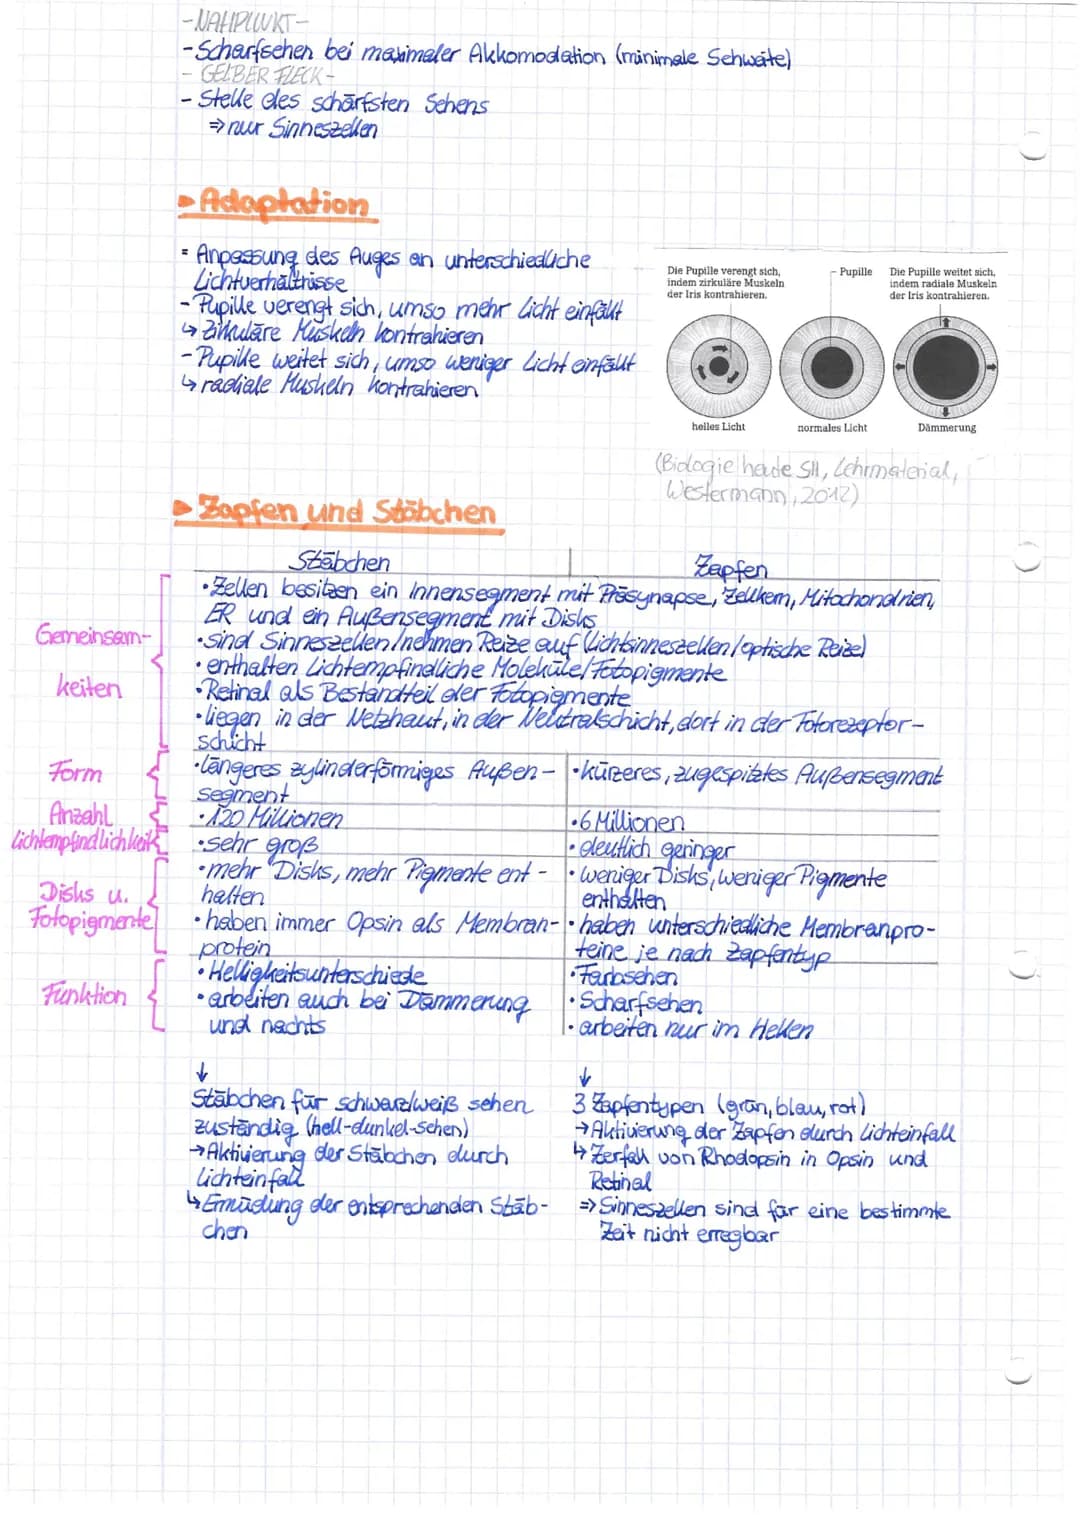 -NAHPUNKT-
-Scharfsehen bei maximaler Akkomodation (minimale Sehweite)
- GELBER FLECK-
- Stelle des schärfsten Sehens
⇒ nur Sinneszellen
▸ Adaptation
= Anpassung des Auges an unterschiedliche
Lichtverhältnisse
- Pupille verengt sich, umso mehr Licht einfällt
↳ Zirkuläre Muskeln kontrahieren
- Pupille weitet sich, umso weniger Licht einfällt
↳ radiale Muskeln kontrahieren
Die Pupille verengt sich,
indem zirkuläre Muskeln
der Iris kontrahieren.
Pupille
Die Pupille weitet sich,
indem radiale Muskeln
der Iris kontrahieren.
helles Licht
normales Licht
Dämmerung
(Biologie heute SII, Lehrmaterial,
Westermann, 2012)
▸ Zapfen und Stäbchen
Stäbchen
Zapfen
Gemeinsam-
keiten
• Zellen besitzen ein Innensegment mit Präsynapse, Zellkern, Mitochondrien,
ER und ein Außensegment mit Disks
• sind Sinneszellen/nehmen Reize auf (Lichtsinneszellen/optische Reize)
• enthalten Lichtempfindliche Moleküle/Fotopigmente
• Retinal als Bestandteil der Fotopigmente
• liegen in der Netzhaut, in der Neutralschicht, dort in der Fotorezeptor-
schicht
Form
• längeres zylinderförmiges Außen-
segment
• kürzeres, zugespitztes Außensegment
Anzahl
• 120 Millionen
• 6 Millionen
Lichtempfindlichkeit
• sehr groß
• deutlich geringer
Disks u.
Fotopigmente
• mehr Disks, mehr Pigmente ent-
halten
• haben immer Opsin als Membran-
protein
• weniger Disks, weniger Pigmente
enthalten
• haben unterschiedliche Membranpro-
teine je nach Zapfentyp
Funktion
• Helligkeitsunterschiede
• arbeiten auch bei Dämmerung
und nachts
• Farbsehen
• Scharfsehen
• arbeiten nur im Hellen
↓
Stäbchen für schwarz/weiß sehen
zuständig (hell-dunkel-sehen)
→ Aktivierung der Stäbchen durch
Lichteinfall
↳ Ermüdung der entsprechenden Stäb-
chen
↓
3 Zapfentypen (grün, blau, rot)
→ Aktivierung der Zapfen durch Lichteinfall
↳ Zerfall von Rhodopsin in Opsin und
Retinal
⇒ Sinneszellen sind für eine bestimmte
Zeit nicht erregbar